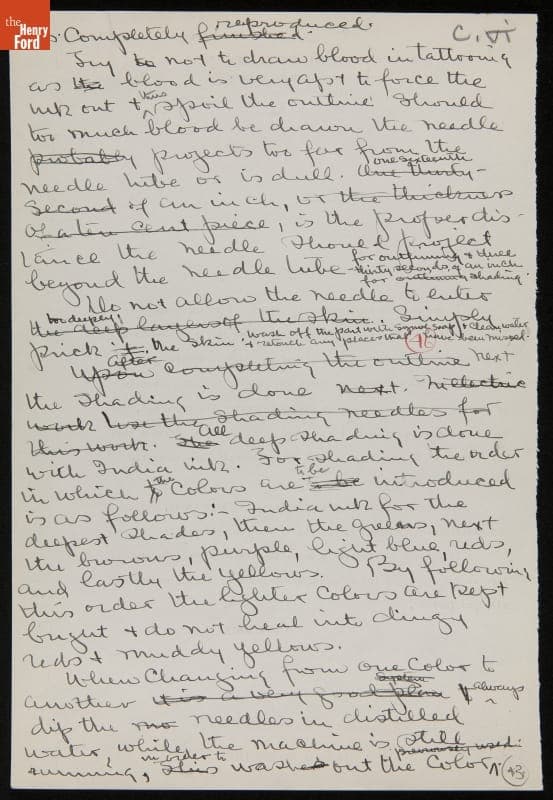 the
Henry
Ford
C. VI
is completely finished. reproduced.
Try to not to draw blood in tattooing
as the blood is very apt to force the
ink out & thus spoil the outline Should
too much blood be drawn the needle
probably projects too far from the
one sixteenth
needle tube or is dull. One thirty-
second of an inch, or the thickness
of a ten cent piece, is the proper dis-
tance the needle should project
beyond the needle tube for outlining & three
thirty seconds of an inch
for outlining shading.
Do not allow the needle to enter
too deeply.
the deep layers of the skin. Simply
prick it. the skin. wash off the part with soap & clean water
& retouch any places that have been missed.
46
Upon after completing the outline next
the shading is done next. In electric
work use the shading needles for
this work. The All deep shading is done
with India ink. For shading the order
in which the colors are to be introduced
is as follows:- India ink for the
deepest shades, then the greens, next
the browns, purple, light blue, reds,
and lastly the yellows. By following
this order the lighter colors are kept
bright & do not heal into dingy
reds & muddy yellows.
When changing from one color to
system
another it is a very good plan always
dip the needles in distilled
water, while the machine is still
previously used.
running, in order to wash out the color
43